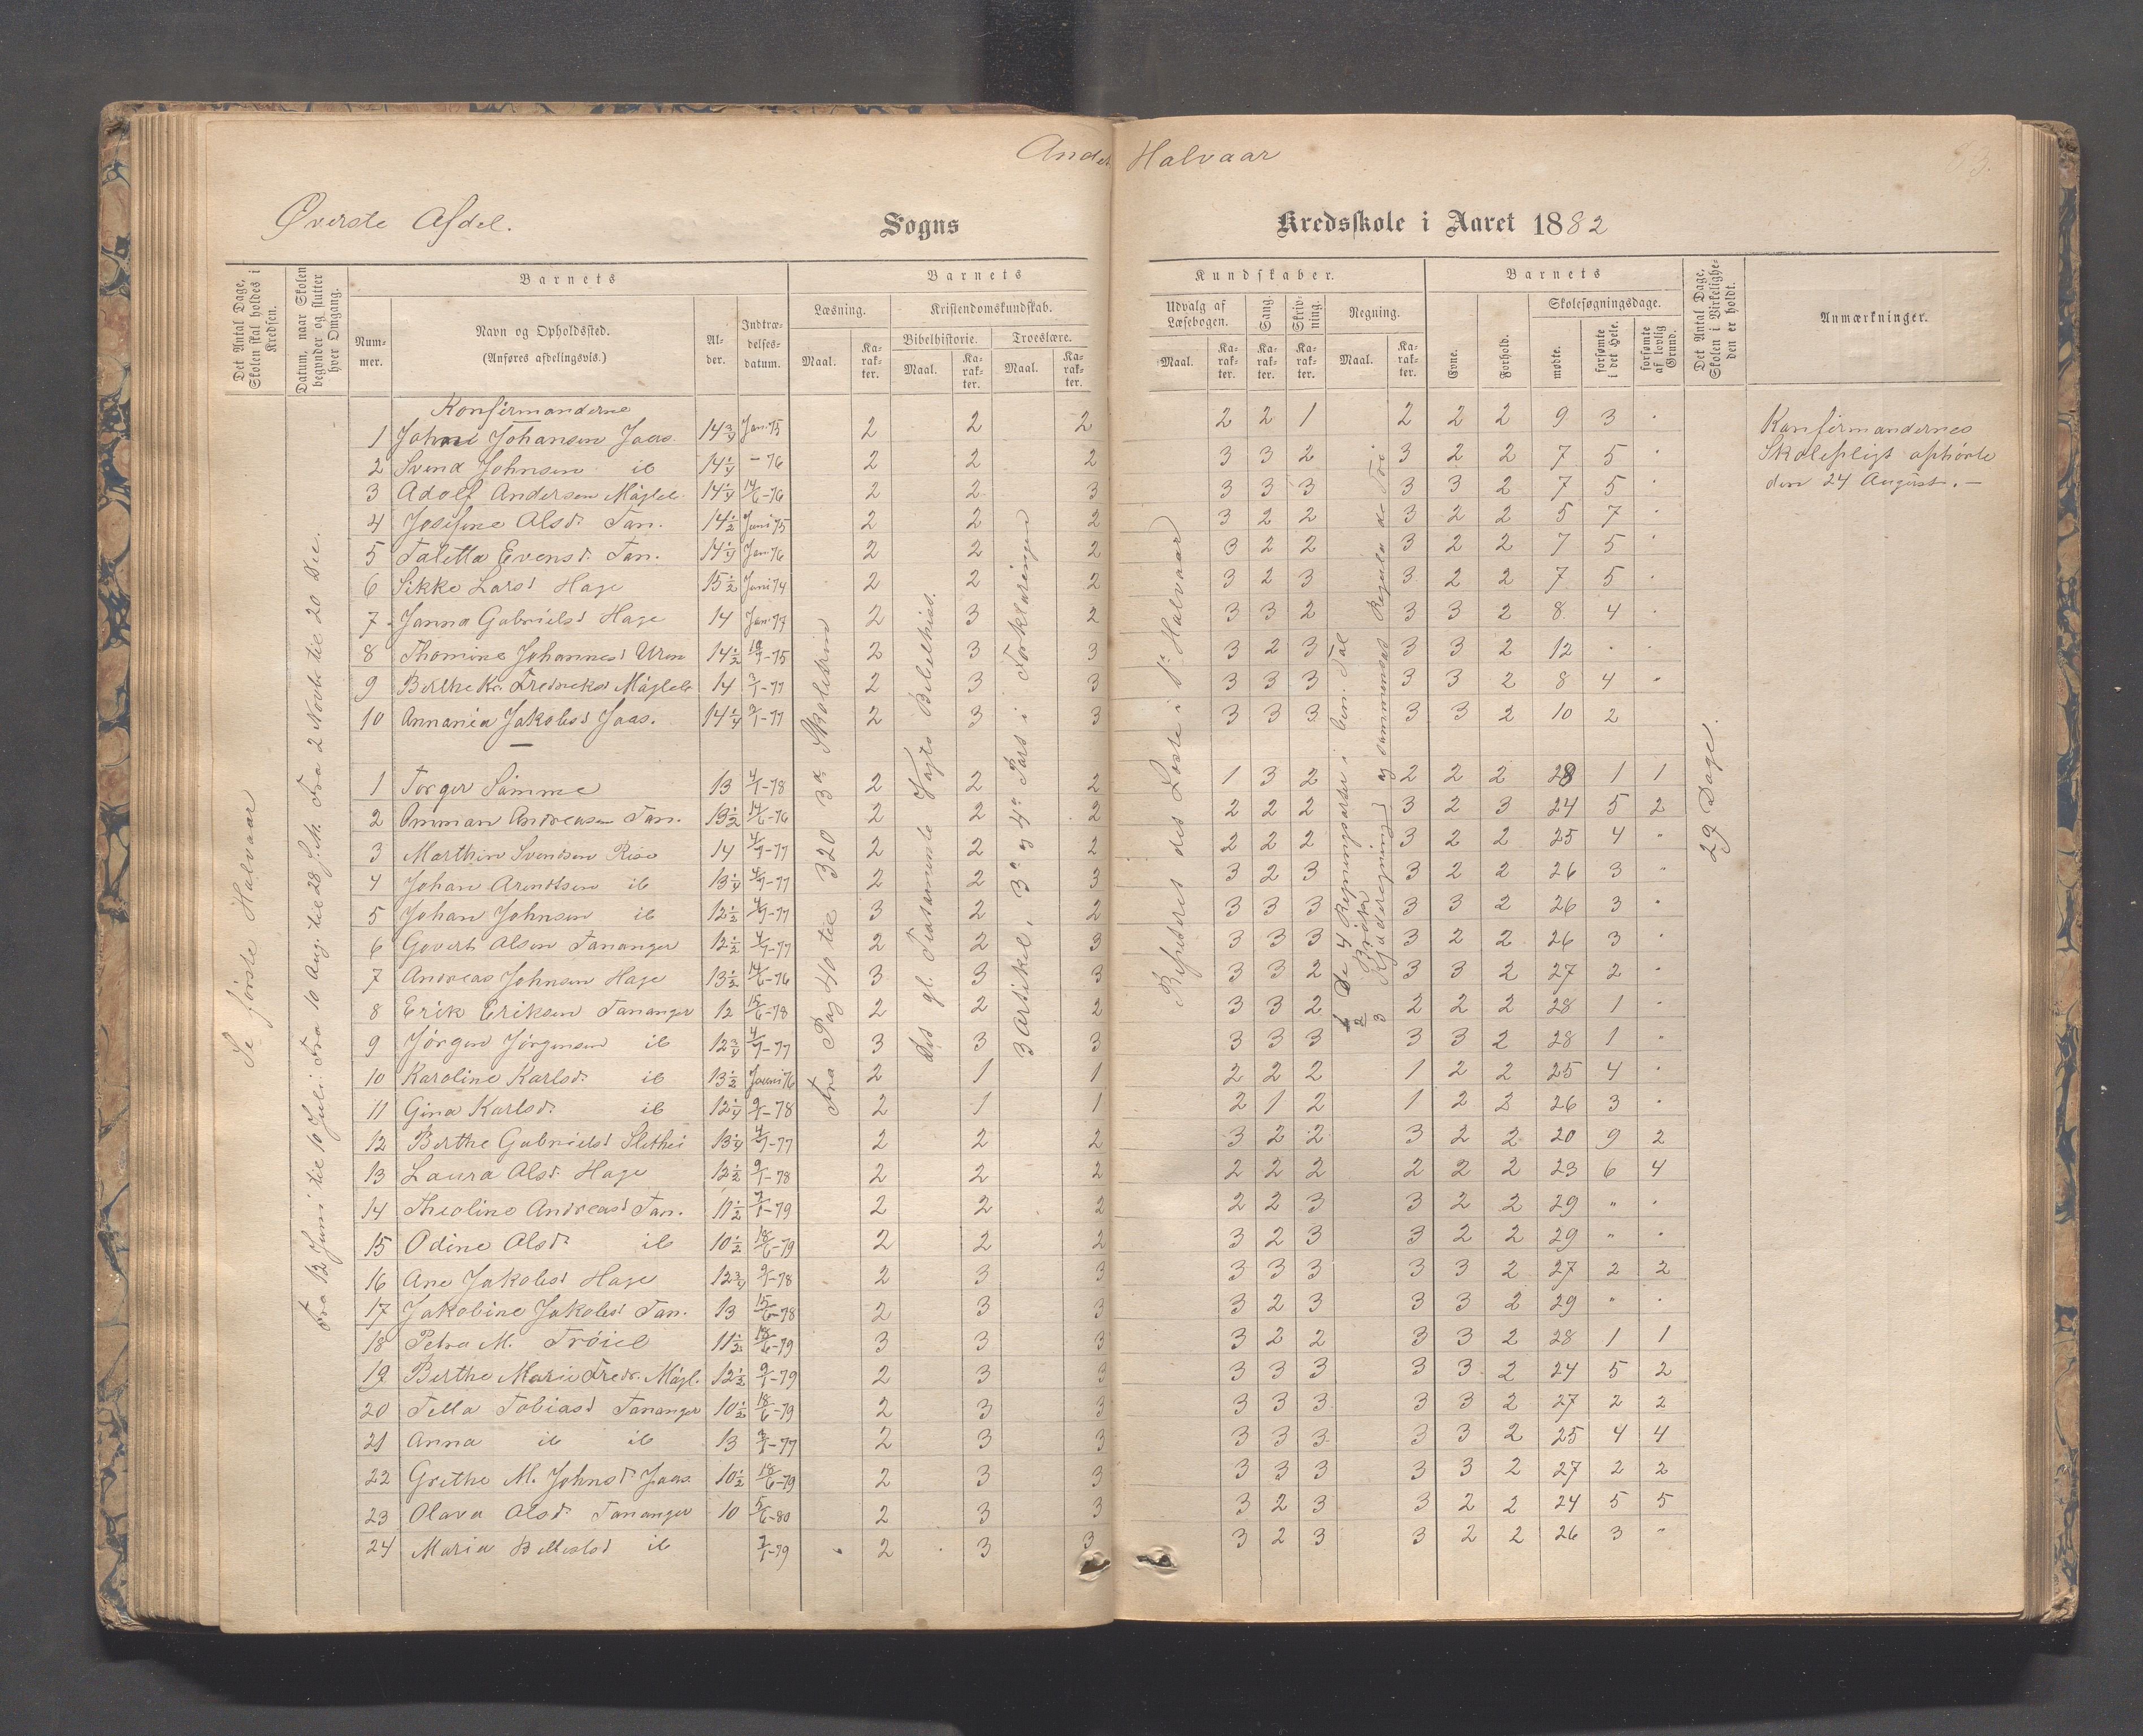 Andet Halvaar
Øverste Afdel.
Sogns
Kredsskole i Aaret 1882
Det Antal Dage, Skolen skal holdes i Kredsen.
Datum, naar Skolen begynder og slutter hver Omgang.
Barnets
Nummer.
Navn og Opholdssted.
(Anføres afdelingsvis.)
Alder.
Indtrædelsesdatum.
Barnets
Læsning.
Kristendomskundskab.
Bibelhistorie.
Troeslære.
Maal.
Karakter.
Maal.
Karakter.
Maal.
Karakter.
Kundskaber.
Udvalg af Læsebogen.
Sang.
Skrivning.
Regning.
Maal.
Karakter.
Karakter.
Karakter.
Maal.
Karakter.
Barnets
Evne.
Forhold.
Skolesøgningsdage.
mødte.
forsømte i det Hele.
forsømte af lovlig Grund.
Det Antal Dage, Skolen i Virkeligheden er holdt.
Anmærkninger.
Se første Halvaar
Fra 12 Juni til 10 Juli. Fra 10 Aug. til 28 s. M. Fra 2 Novbr til 20 Dec.
Fra Pag 40 til 320 3 Skoletrin
gl. Testamente Vogts Bibelhist.
3 Artikel, 3 og 4 Pars i Forklaringen
Repeteres det Læste i 1ste Halvaar
De 4 Regningsarter i ben. Tal
Brøk
Kjæderegning og sammensat Regula de Tri.
29 Dage.
Konfirmanderne
Konfirmandernes
Skolepligt ophørte
den 24 August. —
1 Johansen Jaas. 14¾ Jan. 75 2 2 2 2 2 1 2 2 2 9 3 .
2 Svend Johnsen ib 14¼ - 76 2 2 2 3 3 2 3 2 2 7 5 .
3 Adolf Andersen Møgleb. 14¼ 14/6-76 2 2 3 3 3 3 3 3 2 7 5 .
4 Josefine Olsdr. Tan. 14½ Juni 75 2 2 2 3 2 2 3 2 2 5 7 .
5 Taletta Evensd. Tan. 14¼ Jan. 76 2 2 2 3 2 2 3 2 2 7 5 .
6 Sikke Larsd Hage 15½ Juni 74 2 2 2 3 2 3 3 2 2 7 5 .
7 Janna Gabrielsd Hage 14 Jan. 77 2 3 2 3 3 2 3 3 2 8 4 .
8 Thomine Johannesd Uren 14½ 10/7-75 2 3 3 3 2 3 3 3 2 12 . .
9 Berthe Kr. Fredreksd Møgleb 14 3/1-77 2 3 3 3 3 3 3 3 2 8 4 "
10 Annania Jakobsd Jaas. 14¼ 3/1-77 2 3 3 3 3 3 3 3 2 10 2
1 Torger Sømme 13 4/1-78 2 2 2 1 3 2 2 2 2 28 1 1
2 Omman Andreasen Tan. 13½ 14/6-76 2 2 2 2 2 2 3 2 3 24 5 2
3 Marthin Svendsen Risa 14 4/7-77 2 2 2 2 2 2 3 2 2 25 4 "
4 Johan Arentsen ib 13¼ 4/7-77 2 2 3 3 2 3 3 2 2 26 3 "
5 Johan Johnsen ib 12½ 4/7-77 3 2 2 3 3 3 3 3 2 26 3 "
6 Govert Olsen Tananger 12½ 4/7-77 2 2 3 3 3 3 3 2 2 26 3 "
7 Andreas Johnsen Hage 13½ 14/6-76 3 3 3 3 3 2 3 3 2 27 2 "
8 Erik Eriksen Tananger 12 15/6-78 2 2 2 3 3 2 2 2 2 28 1 "
9 Jørgen Jørgensen ib 12¾ 4/7-77 3 3 3 3 3 3 3 3 2 28 1 "
10 Karoline Karlsdr. ib 13½ Juni 76 2 1 1 2 2 2 1 2 2 25 4 "
11 Gina Karlsdr. ib 12¼ 9/1-78 2 1 1 2 1 2 1 2 2 26 3 "
12 Berthe Gabrielsd Slethei 13¼ 4/7-77 2 2 2 3 2 2 3 2 2 20 9 2
13 Laura Olsdr. Hage 12½ 9/1-78 2 2 2 2 2 2 2 2 2 23 6 4
14 Theoline Andreasd Tan. 11½ 7/1-79 2 2 2 2 2 3 3 2 2 29 " "
15 Odine Olsdr. ib 10½ 18/6-79 2 2 2 3 2 3 3 2 2 29 " "
16 Ane Jakobsd Hage 12¾ 9/1-78 2 3 3 3 3 3 3 3 2 27 2 2
17 Jakobine Jakobsd Tan. 13 15/6-78 2 3 3 3 2 3 3 3 2 29 " .
18 Petra M. Trøiel 11½ 18/6-79 3 3 3 3 2 2 3 3 2 28 1 1
19 Berthe Marie Fredr. Møgl. 12½ 9/1-79 2 3 3 3 3 3 3 3 2 24 5 2
20 Tella Tobiasd Tananger 10½ 18/6-79 2 3 3 3 3 3 3 3 2 27 2 2
21 Anna ib ib 13 3/1-77 2 3 3 3 3 3 3 3 2 25 4 4
22 Grethe M. Johnsdr. Jaas. 10½ 18/6-79 2 3 3 3 3 3 3 3 2 27 2 2
23 Olava Olsdr. Tananger 10 5/6-80 2 3 3 3 2 3 3 2 2 24 5 5
24 Maria ib 7/1-79 2 3 3 3 2 3 3 2 2 26 3 "